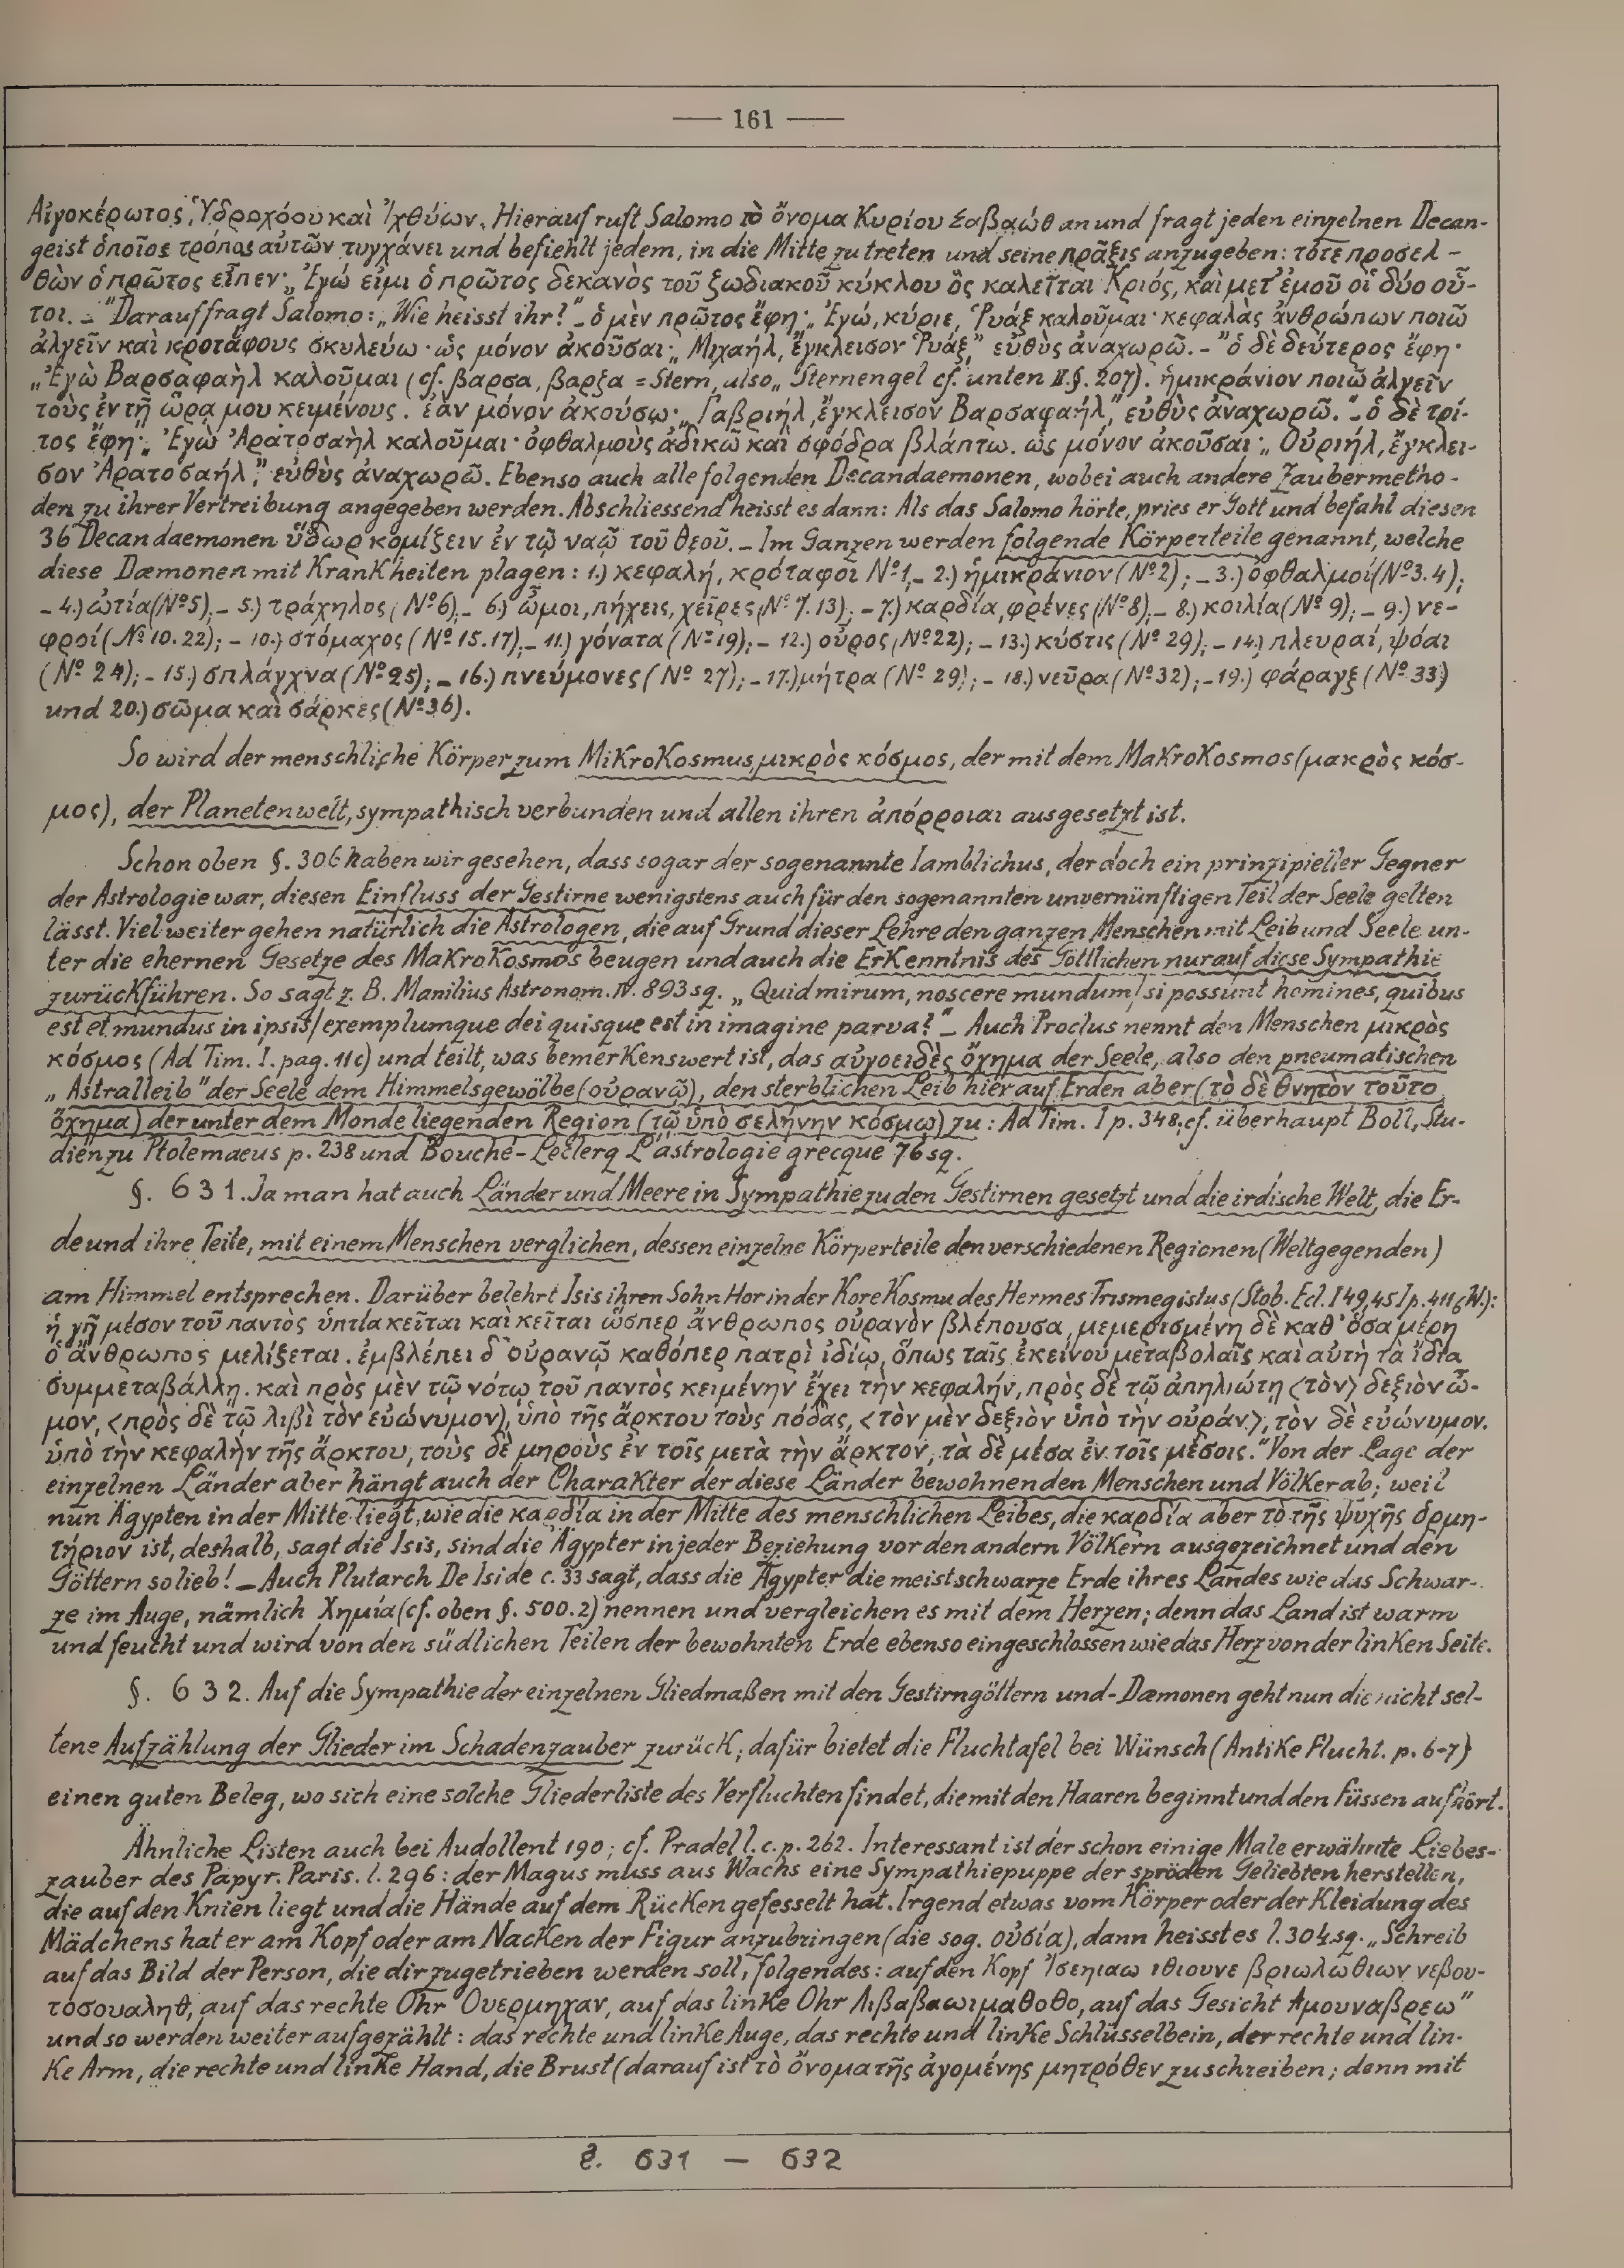 — 161 —
Αἰγοκέρωτος, Ὑδροχόου καὶ Ἰχθύων. Hierauf ruft Salomo τὸ ὄνομα Κυρίου Σαβαώθ an und fragt jeden einzelnen Decan-
geist ὁποῖος τρόπος αὐτῶν τυγχάνει und befiehlt jedem, in die Mitte zu treten und seine πρᾶξις anzugeben: τότε προσελ-
θὼν ὁ πρῶτος εἶπεν· „Ἐγώ εἰμι ὁ πρῶτος δεκανὸς τοῦ ζωδιακοῦ κύκλου ὃς καλεῖται Κριός, καὶ μετ' ἐμοῦ οἱ δύο οὗ-
τοι. –" Darauf fragt Salomo: „Wie heisst ihr?" – ὁ μὲν πρῶτος ἔφη· „Ἐγώ, κύριε, Ῥυάξ καλοῦμαι· κεφαλὰς ἀνθρώπων ποιῶ
ἀλγεῖν καὶ κροτάφους σκυλεύω· ὡς μόνον ἀκοῦσαι· „Μιχαήλ, ἔγκλεισον Ῥυάξ," εὐθὺς ἀναχωρῶ. –" ὁ δὲ δεύτερος ἔφη·
„Ἐγὼ Βαρσαφαὴλ καλοῦμαι (cf. βαρσα, βαρζα = Stern, also „Sternengel cf. unten II. §. 207). ἡμικράνιον ποιῶ ἀλγεῖν
τοὺς ἐν τῇ ὥρᾳ μου κειμένους. ἐὰν μόνον ἀκούσω· „Γαβριήλ, ἔγκλεισον Βαρσαφαήλ," εὐθὺς ἀναχωρῶ." – ὁ δὲ τρί-
τος ἔφη· „Ἐγὼ Ἀρατοσαὴλ καλοῦμαι· ὀφθαλμοὺς ἀδικῶ καὶ σφόδρα βλάπτω. ὡς μόνον ἀκοῦσαι· „Οὐριήλ, ἔγκλει-
σον Ἀρατοσαήλ," εὐθὺς ἀναχωρῶ. Ebenso auch alle folgenden Decandaemonen, wobei auch andere Zaubermetho-
den zu ihrer Vertreibung angegeben werden. Abschliessend heisst es dann: Als das Salomo hörte, pries er Gott und befahl diesen
36 Decandaemonen ὕδωρ κομίζειν ἐν τῷ ναῷ τοῦ θεοῦ. – Im Ganzen werden folgende Körperteile genannt, welche
diese Dæmonen mit Krankheiten plagen: 1.) κεφαλή, κρόταφοι Nº1, – 2.) ἡμικράνιον (Nº2); – 3.) ὀφθαλμοί (Nº3.4);
– 4.) ὠτία (Nº5), – 5.) τράχηλος (Nº6), – 6.) ὦμοι, πήχεις, χεῖρες (Nº 7.13); – 7.) καρδία, φρένες (Nº8), – 8.) κοιλία (Nº 9); – 9.) νε-
φροί (Nº10.22); – 10.) στόμαχος (Nº 15.17), – 11.) γόνατα (Nº19); – 12.) οὖρος (Nº22); – 13.) κύστις (Nº 29); – 14.) πλευραί, ψόαι
(Nº 24); – 15.) σπλάγχνα (Nº25); – 16.) πνεύμονες (Nº 27); – 17.) μήτρα (Nº 29); – 18.) νεῦρα (Nº32); – 19.) φάραγξ (Nº 33)
und 20.) σῶμα καὶ σάρκες (Nº36).
So wird der menschliche Körper zum Mikrokosmus, μικρὸς κόσμος, der mit dem Makrokosmos (μακρὸς κόσ-
μος), der Planetenwelt, sympathisch verbunden und allen ihren ἀπόρροιαι ausgesetzt ist.
Schon oben §. 306 haben wir gesehen, dass sogar der sogenannte Iamblichus, der doch ein prinzipieller Gegner
der Astrologie war, diesen Einfluss der Gestirne wenigstens auch für den sogenannten unvernünftigen Teil der Seele gelten
lässt. Viel weiter gehen natürlich die Astrologen, die auf Grund dieser Lehre den ganzen Menschen mit Leib und Seele un-
ter die ehernen Gesetze des Makrokosmos beugen und auch die Erkenntnis des Göttlichen nur auf diese Sympathie
zurückführen. So sagt z. B. Manilius Astronom. IV. 893 sq. „Quid mirum, noscere mundum / si possunt homines, quibus
est et mundus in ipsis / exemplumque dei quisque est in imagine parva?" – Auch Proclus nennt den Menschen μικρὸς
κόσμος (Ad Tim. I. pag. 11c) und teilt, was bemerkenswert ist, das αὐγοειδὲς ὄχημα der Seele, also den pneumatischen
„Astralleib" der Seele dem Himmelsgewölbe (οὐρανῷ), den sterblichen Leib hier auf Erden aber (τὸ δὲ θνητὸν τοῦτο
ὄχημα) der unter dem Monde liegenden Region (τῷ ὑπὸ σελήνην κόσμῳ) zu: Ad Tim. I p. 348, cf. überhaupt Boll, Stu-
dien zu Ptolemaeus p. 238 und Bouché-Leclerq L'astrologie grecque 76 sq.
§. 631. Ja man hat auch Länder und Meere in Sympathie zu den Gestirnen gesetzt und die irdische Welt, die Er-
de und ihre Teile, mit einem Menschen verglichen, dessen einzelne Körperteile den verschiedenen Regionen (Weltgegenden)
am Himmel entsprechen. Darüber belehrt Isis ihren Sohn Hor in der Kore Kosmu des Hermes Trismegistus (Stob. Ecl. I 49,45 I p. 411 W.):
ἡ γῆ μέσον τοῦ παντὸς ὑπτία κεῖται καὶ κεῖται ὥσπερ ἄνθρωπος οὐρανὸν βλέπουσα, μεμερισμένη δὲ καθ' ὅσα μέρη
ὁ ἄνθρωπος μελίζεται. ἐμβλέπει δ' οὐρανῷ καθάπερ πατρὶ ἰδίῳ, ὅπως ταῖς ἐκείνου μεταβολαῖς καὶ αὐτὴ τὰ ἴδια
συμμεταβάλλῃ. καὶ πρὸς μὲν τῷ νότῳ τοῦ παντὸς κειμένην ἔχει τὴν κεφαλήν, πρὸς δὲ τῷ ἀπηλιώτῃ <τὸν> δεξιὸν ὦ-
μον, <πρὸς δὲ τῷ λιβὶ τὸν εὐώνυμον>, ὑπὸ τῆς ἄρκτου τοὺς πόδας, <τὸν μὲν δεξιὸν ὑπὸ τὴν οὐράν>, τὸν δὲ εὐώνυμον.
ὑπὸ τὴν κεφαλὴν τῆς ἄρκτου, τοὺς δὲ μηροὺς ἐν τοῖς μετὰ τὴν ἄρκτον, τὰ δὲ μέσα ἐν τοῖς μέσοις." Von der Lage der
einzelnen Länder aber hängt auch der Charakter der diese Länder bewohnenden Menschen und Völker ab; weil
nun Ägypten in der Mitte liegt, wie die καρδία in der Mitte des menschlichen Leibes, die καρδία aber τὸ τῆς ψυχῆς ὁρμη-
τήριον ist, deshalb, sagt die Isis, sind die Ägypter in jeder Beziehung vor den andern Völkern ausgezeichnet und den
Göttern so lieb! – Auch Plutarch De Iside c. 33 sagt, dass die Ägypter die meist schwarze Erde ihres Landes wie das Schwar-
ze im Auge, nämlich Χημία (cf. oben §. 500.2) nennen und vergleichen es mit dem Herzen; denn das Land ist warm
und feucht und wird von den südlichen Teilen der bewohnten Erde ebenso eingeschlossen wie das Herz von der linken Seite.
§. 632. Auf die Sympathie der einzelnen Gliedmaßen mit den Gestirngöttern und -Dæmonen geht nun die nicht sel-
tene Aufzählung der Glieder im Schadenzauber zurück; dafür bietet die Fluchtafel bei Wünsch (Antike Flucht. p. 6-7)
einen guten Beleg, wo sich eine solche Gliederliste des Verfluchten findet, die mit den Haaren beginnt und den Füssen aufhört.
Ähnliche Listen auch bei Audollent 190; cf. Pradel l. c. p. 262. Interessant ist der schon einige Male erwähnte Liebes-
zauber des Papyr. Paris. l. 296: der Magus muss aus Wachs eine Sympathiepuppe der spröden Geliebten herstellen,
die auf den Knien liegt und die Hände auf dem Rücken gefesselt hat. Irgend etwas vom Körper oder der Kleidung des
Mädchens hat er am Kopf oder am Nacken der Figur anzubringen (die sog. οὐσία), dann heisst es l. 304 sq. „Schreib
auf das Bild der Person, die dir zugetrieben werden soll, folgendes: auf den Kopf Ἰσεηιαω ιθιουνε βριωλωθιων νεβου-
τοσουαληθ, auf das rechte Ohr Ουερμηχαν, auf das linke Ohr Λιβαβαωιμαθοθο, auf das Gesicht Αμουναβρεω"
und so werden weiter aufgezählt: das rechte und linke Auge, das rechte und linke Schlüsselbein, der rechte und lin-
ke Arm, die rechte und linke Hand, die Brust (darauf ist τὸ ὄνομα τῆς ἀγομένης μητρόθεν zu schreiben; denn mit
§. 631 – 632